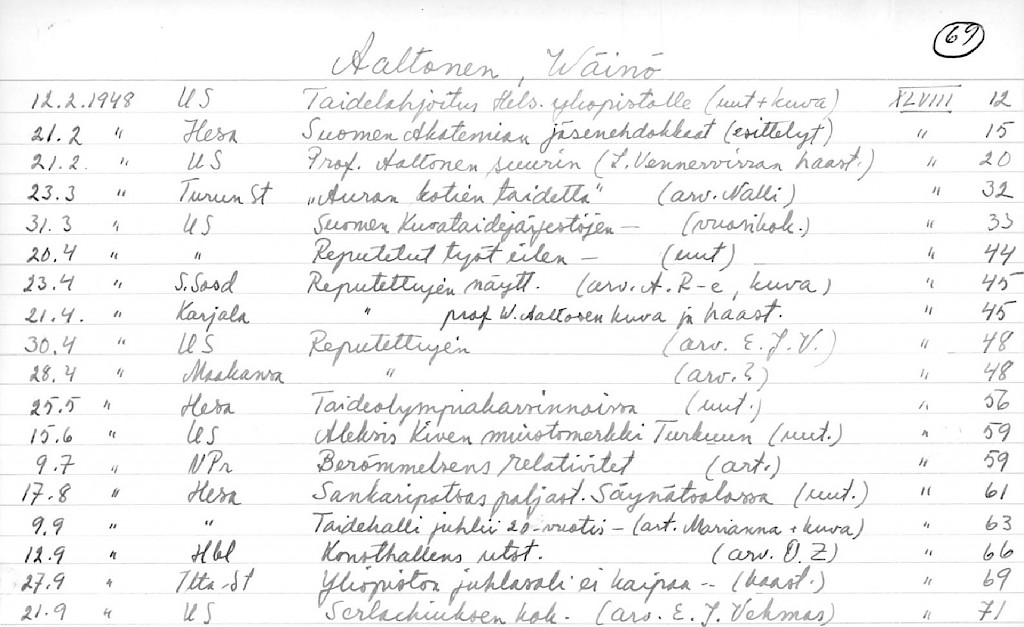 69
Aaltonen, Wäinö
12.2.1948 US Taidelahjoitus Hels. yliopistolle (uut + kuva) XLVIII 12
21.2 " Hesa Suomen Akatemian jäsenehdokkaat (esittelyt) " 15
21.2. " US Prof. Aaltonen suurin (L. Vennervirran haast.) " 20
23.3 " Turun St "Auran kotien taidetta" (arv. Nalli) " 32
31.3 " US Suomen Kuvataidejärjestöjen – (vuosikok.) " 33
20.4 " " Reputetut työt eilen – (uut) " 44
23.4 " S.Sosd Reputettujen näytt. (arv. A. R-e, kuva) " 45
21.4. " Karjala " prof W. Aaltosen kuva ja haast. " 45
30.4 " US Reputettujen (arv. E. J. V.) " 48
28.4 " Maakansa " (arv. ?) " 48
25.5 " Hesa Taideolympiakarsinnoissa (uut.) " 56
15.6 " US Aleksis Kiven muistomerkki Turkuun (uut.) " 59
9.7 " NPr Berömmelsens relativitet (art.) " 59
17.8 " Hesa Sankaripatsas paljast. Säynätsalossa (uut.) " 61
9.9 " " Taidehalli juhlii 20-vuotis – (art. Marianna + kuva) " 63
12.9 " Hbl Konsthallens utst. (arv. O. Z) " 66
27.9 " Ilta-St Yliopiston juhlasali ei kaipaa -- (haast.) " 69
21.9 " US Serlachiuksen kok. (arv. E. J. Vehmas) " 71